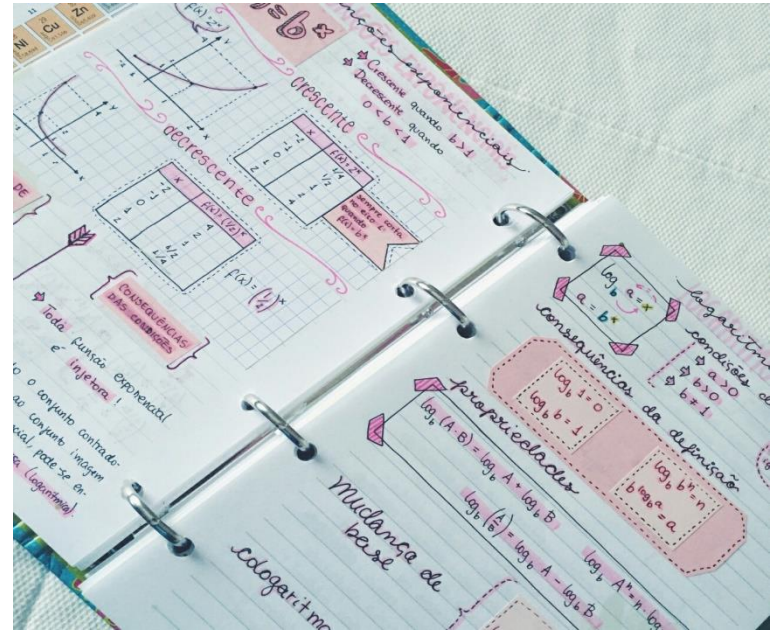 Ni
29
Cu
Zn
f(x)=2ˣ
=bˣ
nções exponenciais
➩ Crescente quando b>1
Decrescente quando
0<b<1
crescente
x f(x)=2ˣ
-2 1/4
-1 1/2
0 1
1 2
2 4
sempre corta
no eixo
quando
f(x)=bˣ
decrescente
x f(x)=(1/2)ˣ
-2 4
-1 2
0 1
1 1/2
2 1/4
f(x)=(1/2)ˣ
DE
CONSEQUÊNCIAS
DAS CONDIÇÕES
➩ Toda função exponencial
é injetora!
o conjunto contrado-
ao conjunto imagem
cial, pode-se en-
sa (logarítmica).
logaritm
log_b a = x
a = bˣ
condições d
➩ a>0
➩ b>0
b≠1
consequências da definição
log_b 1 = 0
log_b b = 1
log_b bⁿ = n
b^(log_b a) = a
propriedades
log_b (A·B) = log_b A + log_b B
log_b (A/B) = log_b A - log_b B
log_b Aⁿ = n·log
mudança de
base
cologaritmo